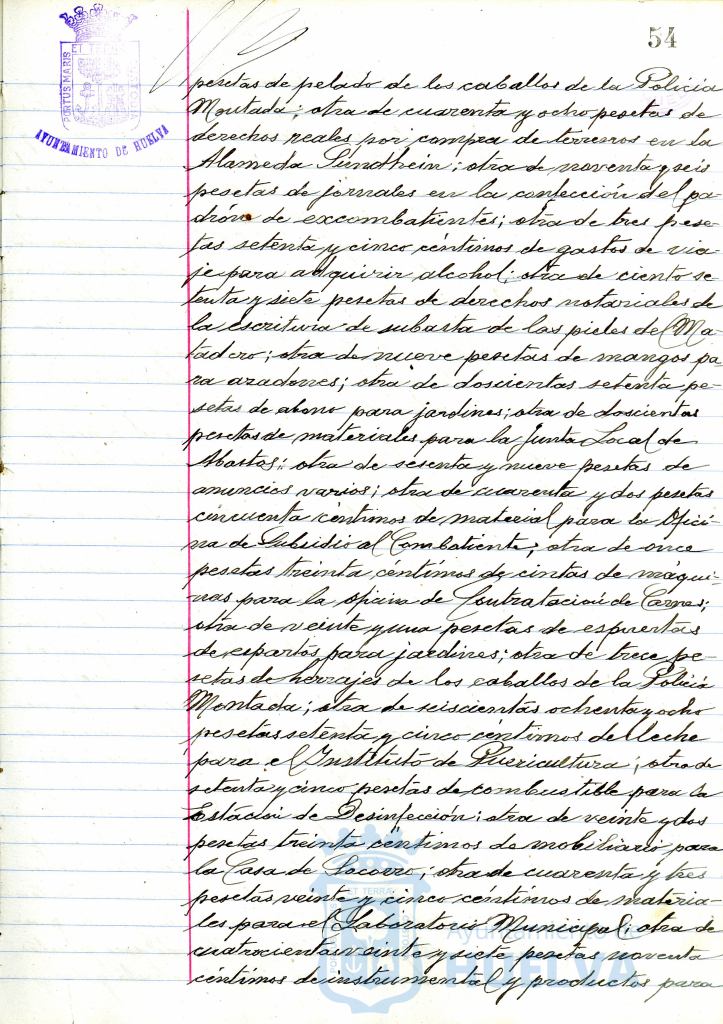 54
PORTUS MARIS ET TERRAE CUSTODIA
AYUNTAMIENTO DE HUELVA
pesetas de pelado de los caballos de la Policía
Montada; otra de cuarenta y ocho pesetas de
derechos reales por compra de terrenos en la
Alameda Sundhein; otra de noventa y seis
pesetas de jornales en la confección del pa-
drón de excombatientes; otra de tres pese-
tas setenta y cinco céntimos de gastos de via-
je para adquirir alcohol; otra de ciento se-
tenta y siete pesetas de derechos notariales de
la escritura de subasta de las pieles del Ma-
tadero; otra de nueve pesetas de mangos pa-
ra azadones; otra de doscientas setenta pe-
setas de abono para jardines; otra de doscientas
pesetas de materiales para la Junta Local de
Abastos; otra de sesenta y nueve pesetas de
anuncios varios; otra de cuarenta y dos pesetas
cincuenta céntimos de material para la Ofici-
na de Subsidio al Combatiente; otra de once
pesetas treinta céntimos de cintas de máqui-
nas para la oficina de Contratación de Carnes;
otra de veinte y una pesetas de espuertas
de espartos para jardines; otra de trece pe-
setas de herrajes de los caballos de la Policía
Montada; otra de seiscientas ochenta y ocho
pesetas setenta y cinco céntimos de leche
para el Instituto de Puericultura; otra de
setenta y cinco pesetas de combustible para la
Estación de Desinfección; otra de veinte y dos
pesetas treinta céntimos de mobiliario para
la Casa de Socorro; otra de cuarenta y tres
pesetas veinte y cinco céntimos de materia-
les para el Laboratorio Municipal; otra de
cuatrocientas veinte y siete pesetas noventa
céntimos de instrumental y productos para
Ayuntamiento de
HUELVA